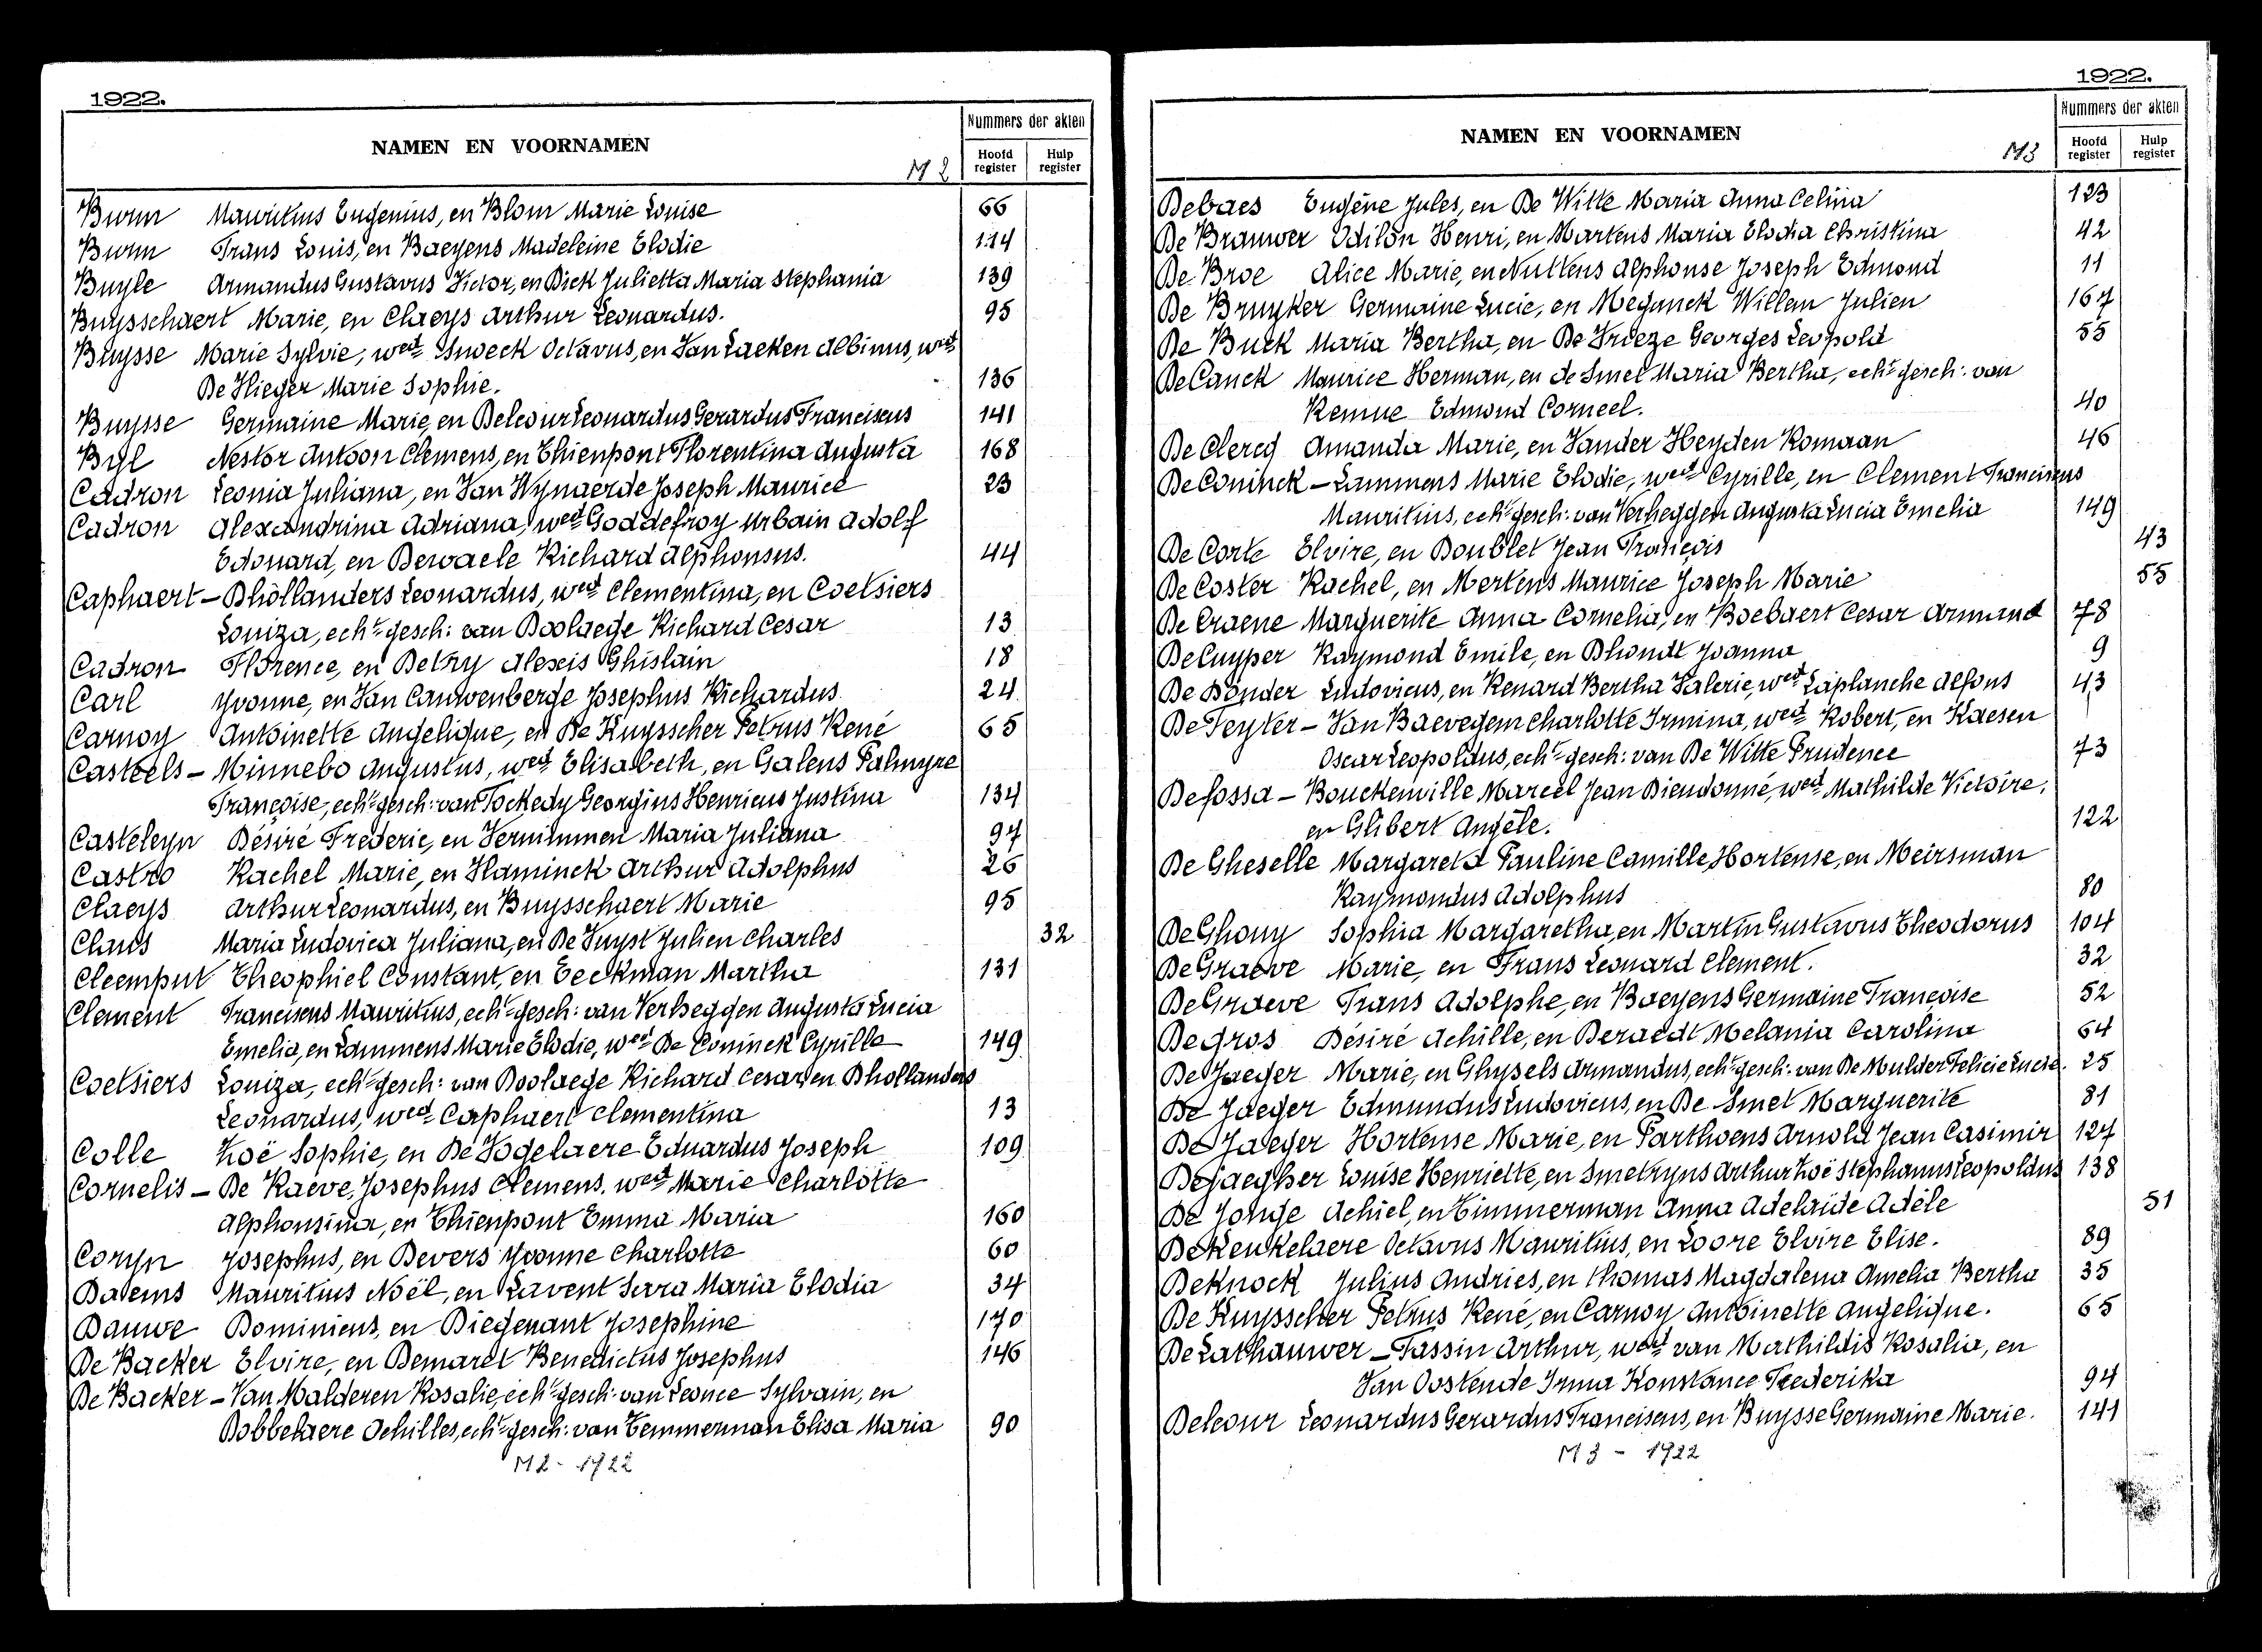 1922.
NAMEN EN VOORNAMEN
M 2
Nummers der akten
Hoofd register
Hulp register
Burm Mauritius Eugenius, en Blom Marie Louise 66
Burm Frans Louis, en Baeyens Madeleine Elodie 114
Buyle Armandus Gustavus Victor, en Dick Julietta Maria Stephania 139
Buysschaert Marie, en Claeys Arthur Leonardus. 95
Buysse Marie Sylvie, wed. Octavus, en Van Laeken Albinus, wed.
De Vlieger Marie Sophie. 136
Buysse Germaine Marie, en Delcour Leonardus Gerardus Franciscus 141
Byl Nestor Antoon Clemens, en Thienpont Florentina Augusta 168
Cadron Leonia Juliana, en Van Wynaerde Joseph Maurice 23
Cadron Alexandrina Adriana, wed. Goddefroy Urbain Adolf
Edouard, en Dewaele Richard Alphonsus. 44
Caphaert – Dhollanders Leonardus, wed. Clementina, en Coetsiers
Louiza, echt. gesch: van Boolaege Richard Cesar 13
Cadron Florence, en Detry Alexis Ghislain 18
Carl Yvonne, en Van Cauwenberge Josephus Richardus 24
Carnoy Antoinette Angelique, en De Kuysscher Petrus René 65
Casteels – Minnebo Augustus, wed. Elisabeth, en Galens Palmyre
Françoise, echt. gesch: van Tockedy Georgius Henricus Justina 134
Casteleyn Désiré Frederic, en Vernimmen Maria Juliana 97
Castro Rachel Marie, en Vlaminck Arthur Adolphus 26
Claeys Arthur Leonardus, en Buysschaert Marie 95
Claus Maria Ludovica Juliana, en De Vuyst Julien Charles 32
Cleemput Theophiel Constant, en Eeckman Martha 131
Clement Franciscus Mauritius, echt. gesch: van Verheggen Augusta Lucia
Emelia, en Lammens Marie Elodie, wed. De Coninck Cyrille 149
Coetsiers Louiza, echt. gesch: van Boolaege Richard Cesar, en Dhollanders
Leonardus, wed. Caphaert Clementina 13
Colle Zoë Sophie, en De Vogelaere Eduardus Joseph 109
Cornelis – De Raeve, Josephus Clemens, wed. Marie Charlotte
Alphonsina, en Thienpont Emma Maria 160
Coryn Josephus, en Devers Yvonne Charlotte 60
Daems Mauritius Noël, en Lavent Sara Maria Elodia 34
Dauwe Dominicus, en Diegenant Josephine 170
De Backer Elvire, en Demaret Benedictus Josephus 146
De Backer – Van Malderen Rosalie, echt. gesch: van Leonce Sylvain, en
Dobbelaere Achilles, echt. gesch: van Temmerman Elisa Maria 90
M2 - 1922
1922.
NAMEN EN VOORNAMEN
M3
Nummers der akten
Hoofd register
Hulp register
Debaes Eugène Jules, en De Witte Maria Anna Celina 123
De Brauwer Odilon Henri, en Martens Maria Elodia Christina 42
De Broe Alice Marie, en Nuttens Alphonse Joseph Edmond 11
De Bruyker Germaine Lucie, en Meganck Willem Julien 167
De Buck Maria Bertha, en De Vrieze Georges Leopold 55
De Canck Maurice Herman, en de Smet Maria Bertha, echt. gesch: van
Remue Edmond Corneel. 40
De Clercq Amanda Marie, en Vander Heyden Romaan 46
De Coninck – Lammens Marie Elodie, wed. Cyrille, en Clement Franciscus
Mauritius, echt. gesch: van Verheggen Augusta Lucia Emelia 149
De Corte Elvire, en Doublet Jean François 43
De Coster Rachel, en Mertens Maurice Joseph Marie 55
De Craene Marguerite Anna Cornelia, en Boebaert Cesar Armand 78
De Cuyper Raymond Emile, en Dhondt Joanna 9
De Donder Ludovicus, en Renard Bertha Valerie, wed. Laplanche Alfons 43
De Feyter – Van Baevegem Charlotte Irmina, wed. Robert, en Kaesen
Oscar Leopoldus, echt. gesch: van De Witte Prudence 73
Defossa – Bouckenville Marcel Jean Dieudonné, wed. Mathilde Victoire,
en Glibert Angèle. 122
De Gheselle Margareta Pauline Camille Hortense, en Meirsman
Raymondus Adolphus 80
De Ghouy Sophia Margaretha, en Martin Gustavus Theodorus 104
De Graeve Marie, en Frans Leonard Clement. 32
De Graeve Frans Adolphe, en Baeyens Germaine Françoise 52
Degros Désiré Achille, en Beraedt Melania Carolina 64
De Jaeger Marie, en Ghysels Armandus, echt. gesch: van De Mulder Felicie Lucie. 25
De Jaeger Edmundus Ludovicus, en De Smet Marguerite 81
De Jaeger Hortense Marie, en Parthoens Arnold Jean Casimir 127
Dejaegher Louise Henriette, en Smetryns Arthur Zoë Stephanus Leopoldus 138
De Jonge Achiel, en Timmerman Anna Adelaïde Adèle 51
De Keukelaere Octavus Mauritius, en Loore Elvire Elise. 89
De Knock Julius Andries, en Thomas Magdalena Amelia Bertha 35
De Kuysscher Petrus René, en Carnoy Antoinette Angelique. 65
De Lathauwer – Tassin Arthur, wed. van Mathildis Rosalia, en
Van Oostende Irma Konstance Frederika 94
Delcour Leonardus Gerardus Franciscus, en Buysse Germaine Marie. 141
M3 - 1922